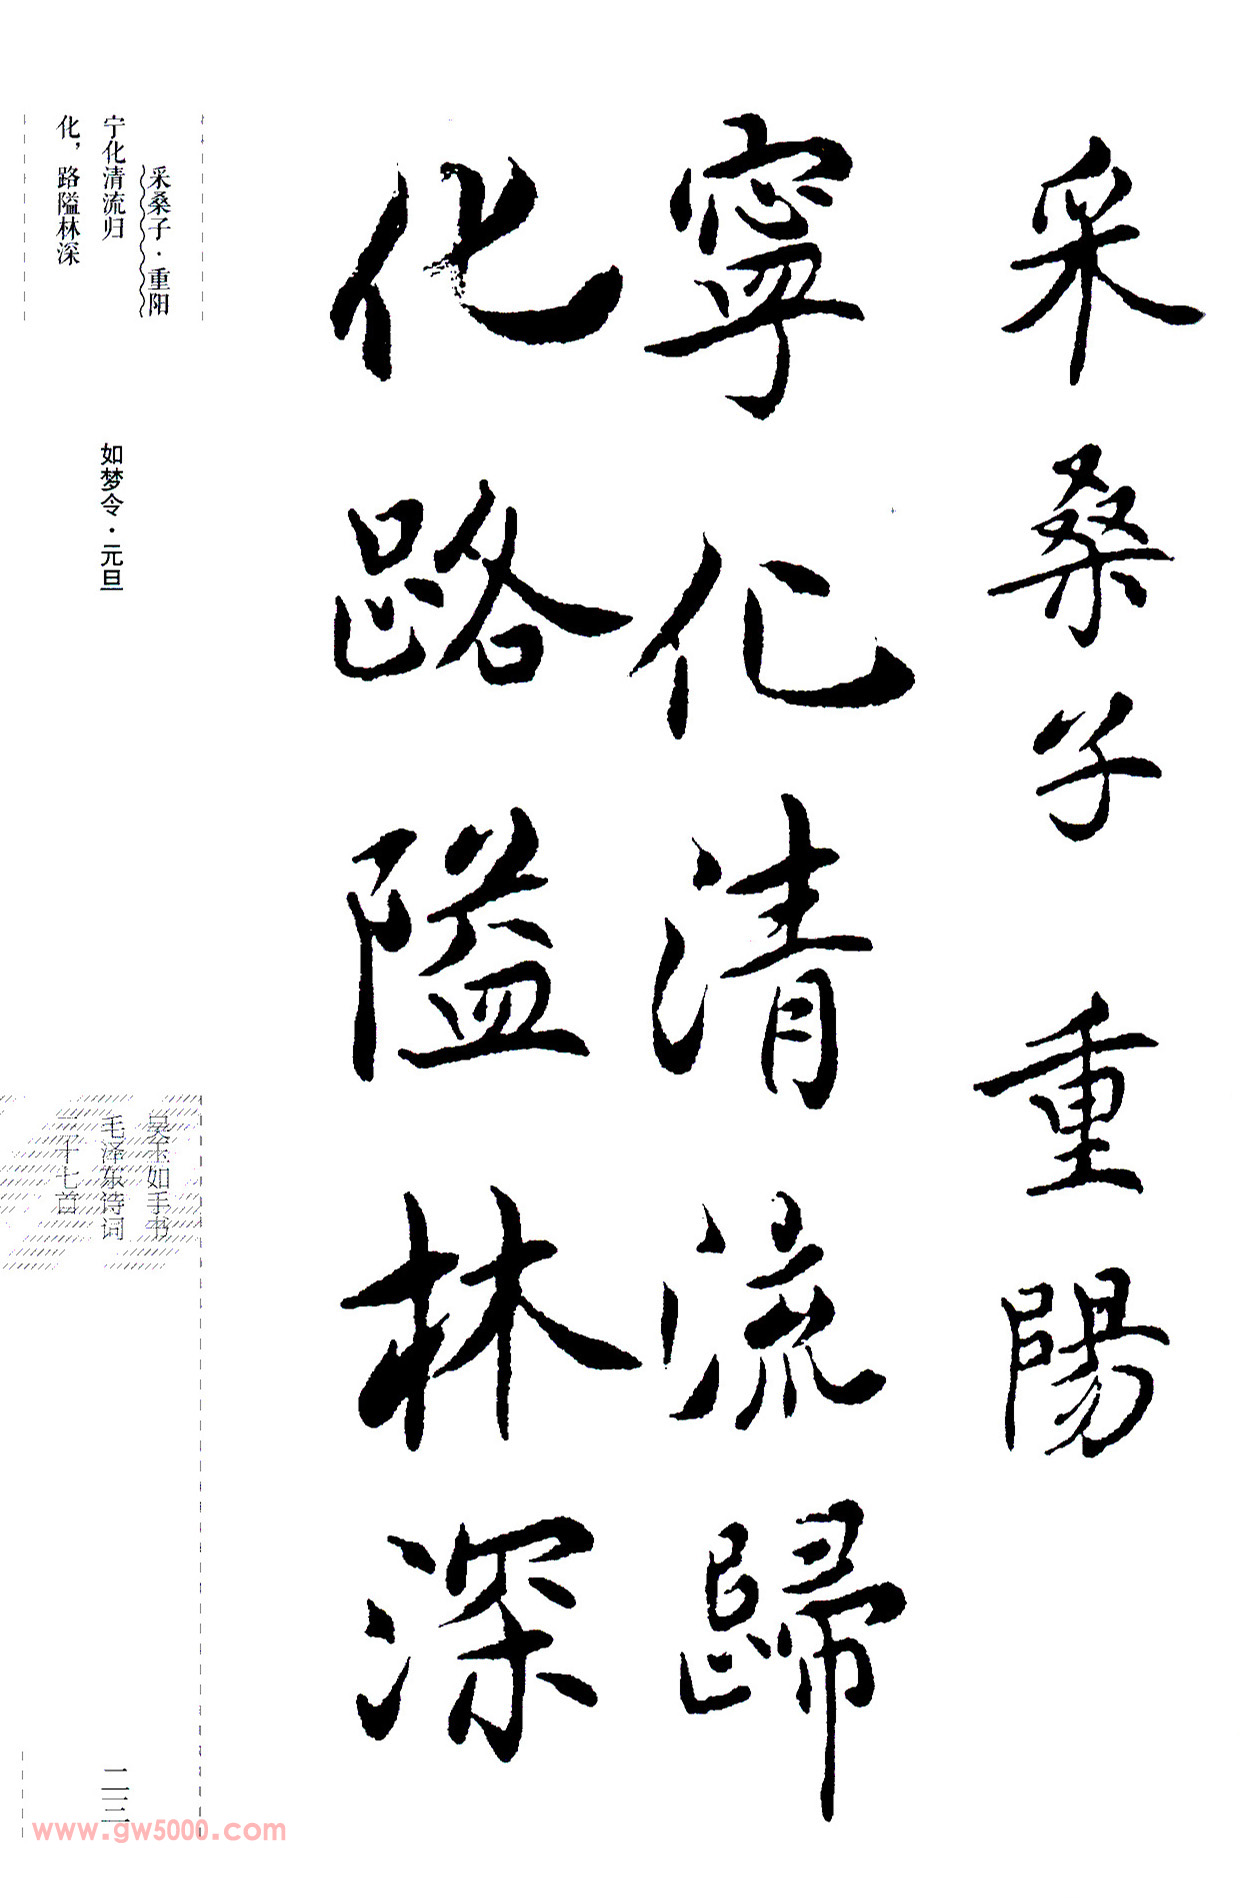 采桑子 重陽
寧化清流歸
化路隘林深
采桑子·重阳
宁化清流归
化，路隘林深
如梦令·元旦
吴玉如手书
毛泽东诗词
三十七首
二三
www.gw5000.com